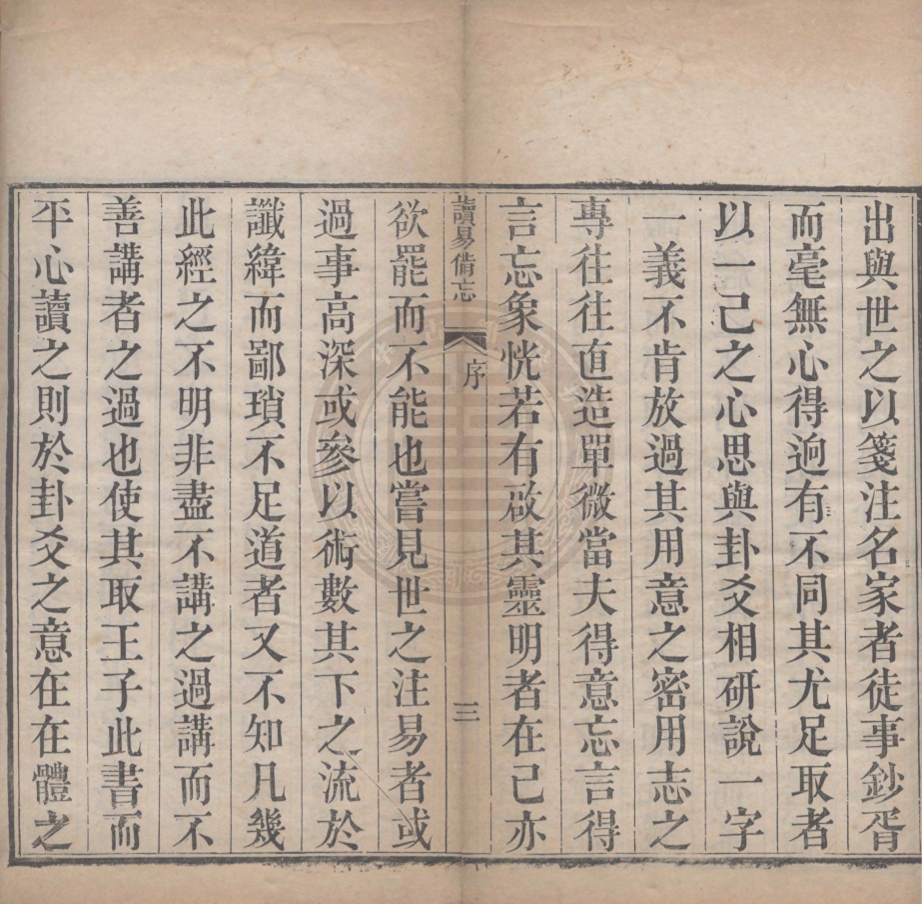 出與世之以箋注名家者徒事鈔胥
而毫無心得逈有不同其尤足取者
以一己之心思與卦爻相研說一字
一義不肯放過其用意之密用志之
專往往直造單微當夫得意忘言得
言忘象恍若有啟其靈明者在己亦
讀易備忘 序 三
欲罷而不能也嘗見世之注易者或
過事高深或參以術數其下之流於
讖緯而鄙瑣不足道者又不知凡幾
此經之不明非盡不講之過講而不
善講者之過也使其取王子此書而
平心讀之則於卦爻之意在在體之